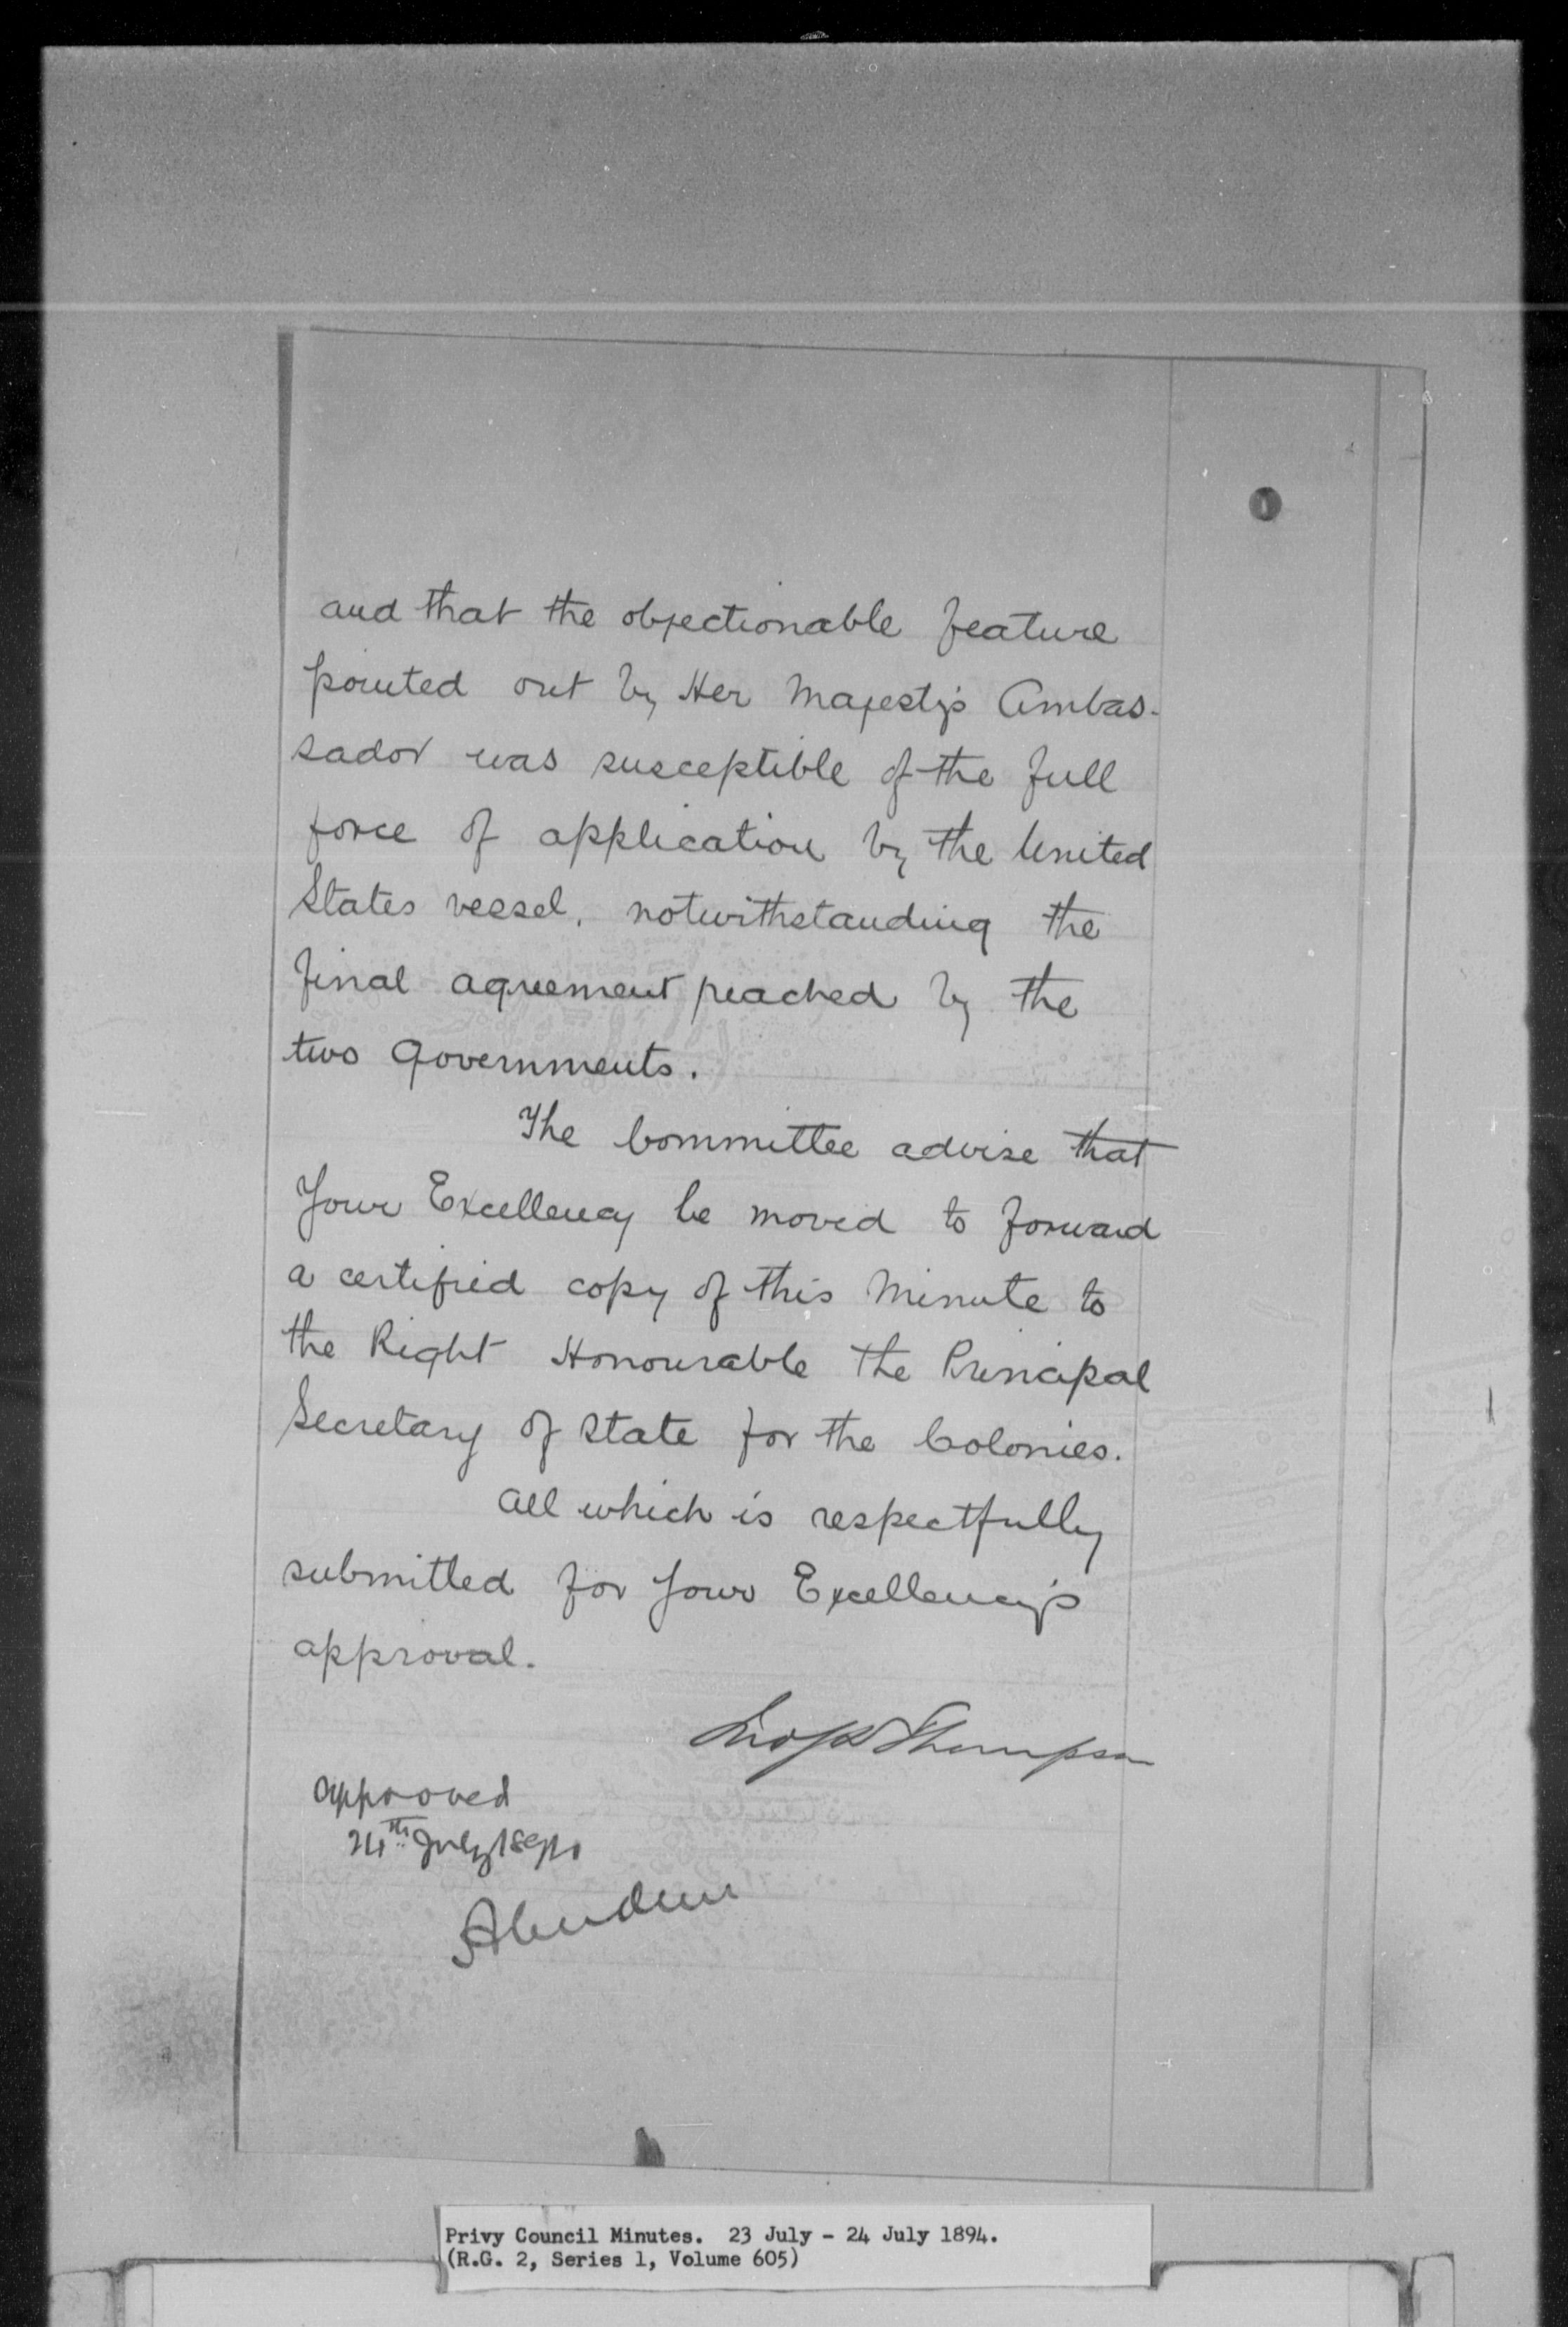 and that the objectionable feature
pointed out by Her Majesty's Ambas-
sador was susceptible of the full
force of application by the United
States vessel, notwithstanding the
final agreement reached by the
two Governments.
The Committee advise that
Your Excellency be moved to forward
a certified copy of this Minute to
the Right Honourable the Principal
Secretary of State for the Colonies.
All which is respectfully
submitted for Your Excellency's
approval.
Jno S D Thompson
approved
24th July 1894
Aberdeen
Privy Council Minutes. 23 July - 24 July 1894.
(R.G. 2, Series 1, Volume 605)